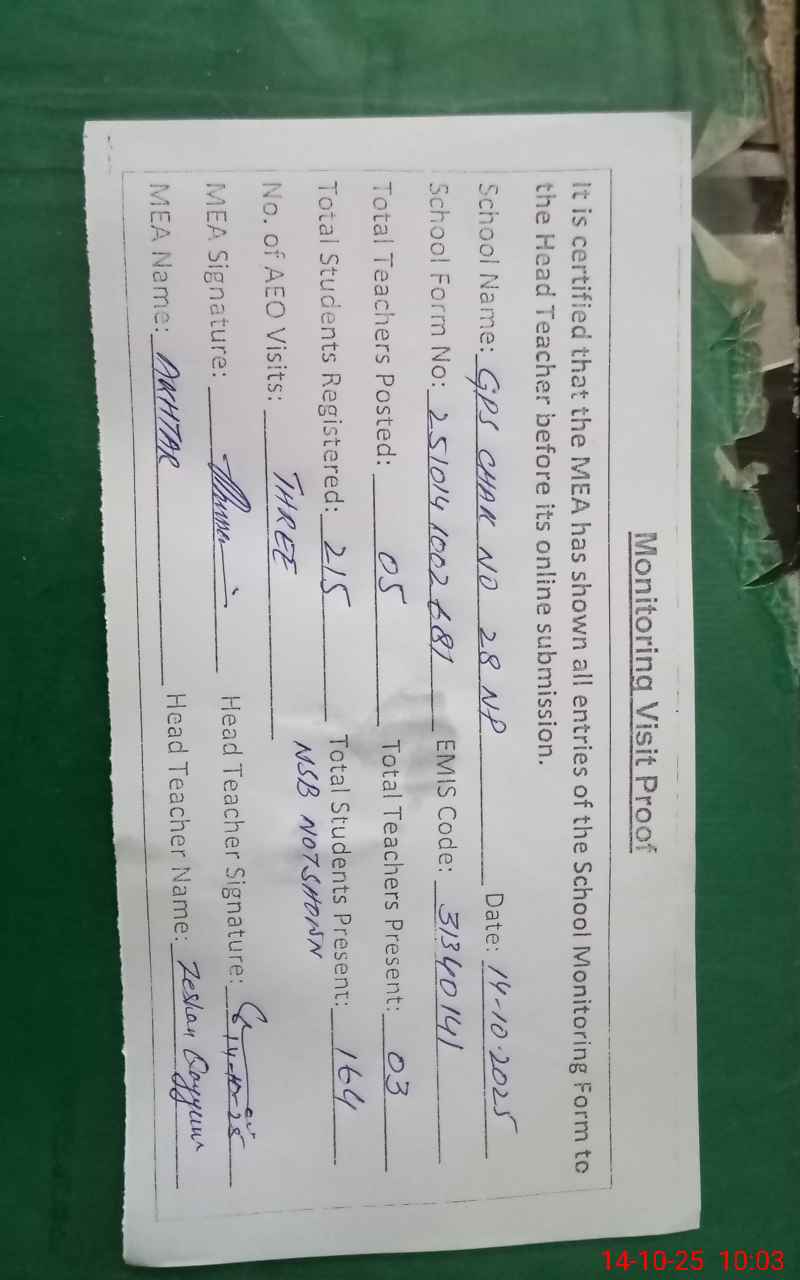 Monitoring Visit Proof
It is certified that the MEA has shown all entries of the School Monitoring Form to
the Head Teacher before its online submission.
School Name: GPS CHAK NO 28 NP Date: 14-10-2025
School Form No: 2510141002681 EMIS Code: 31340141
Total Teachers Posted: 05 Total Teachers Present: 03
Total Students Registered: 215 Total Students Present: 164
No. of AEO Visits: THREE NSB NOT SHOWN
MEA Signature: Head Teacher Signature:
MEA Name: AKHTAR Head Teacher Name: Zeshan Qayyum
14-10-25 10:03